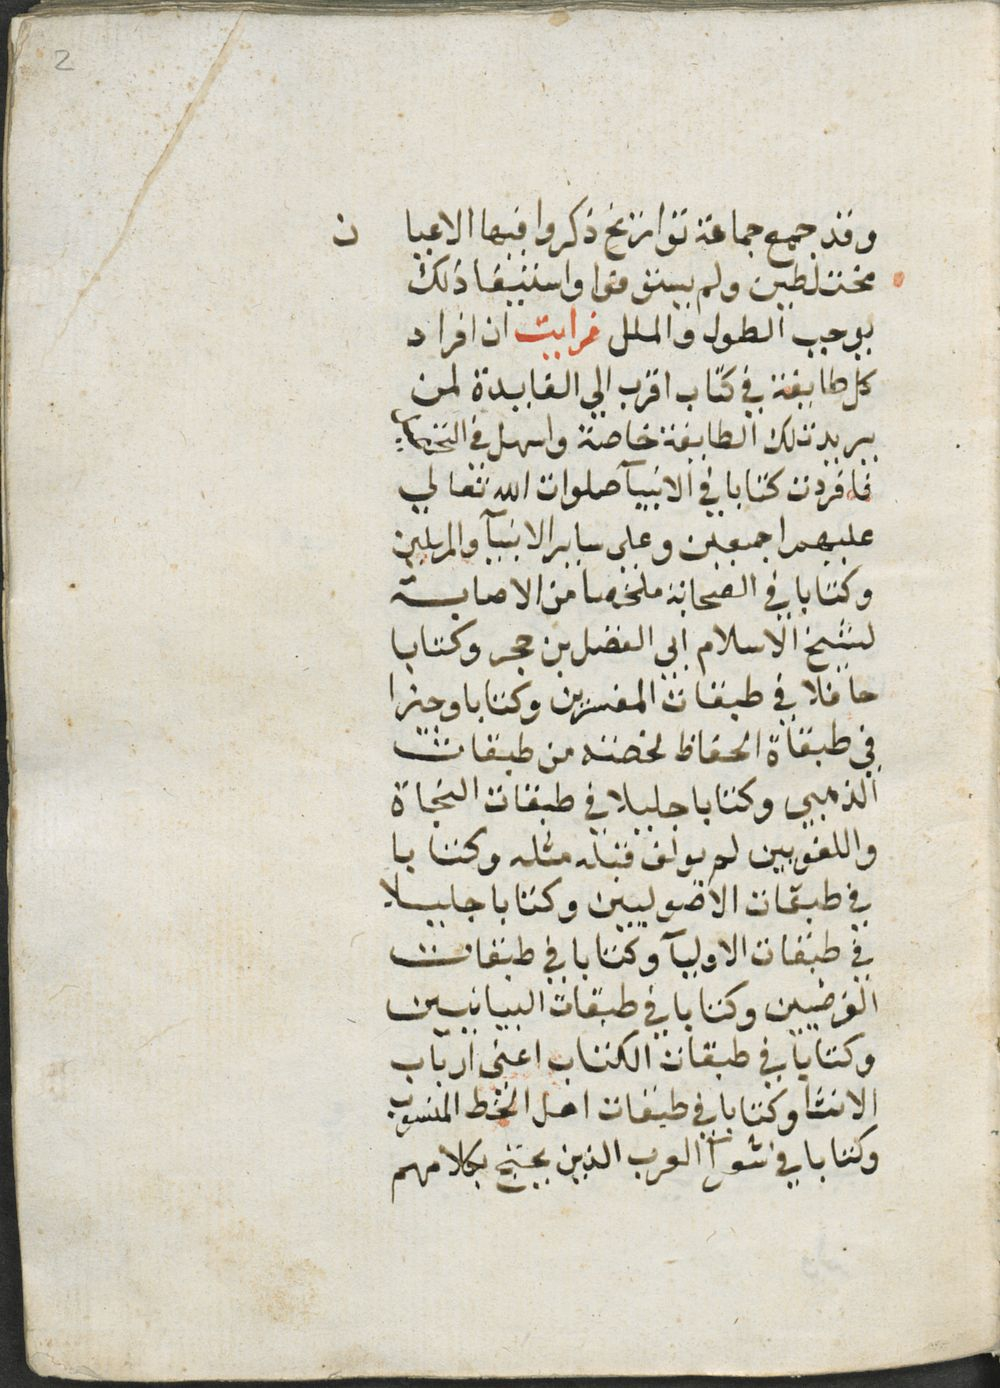 2
وقد جمع جماعة تواريخ ذكروا فيها الاعيان
مختلطين ولم يستوفوا واستيفا ذلك
يوجب الطول والملل فرايت ان افراد
كل طايفة في كتاب اقرب الي الفايدة لمن
يريد تلك الطايفة خاصة واسهل في
فافردت كتابا في الانبيآ صلوات الله تعالي
عليهم اجمعين وعلي ساير الانبيآ والمرسلين
وكتابا في الصحابة ملخصا من الاصابة
لشيخ الاسلام ابي الفضل بن حجر وكتابا
حافلا في طبقات المفسرين وكتابا وجيزا
في طبقاة الحفاظ لخصته من طبقات
الذهبي وكتابا جليلا في طبقات النحاة
واللغويين لم يولف قبله مثله وكتابا
في طبقات الاصوليين وكتابا جليلا
في طبقات الاوليآ وكتابا في طبقات
الفرضيين وكتابا في طبقات البيانيين
وكتابا في طبقات الكتاب اعني ارباب
الانشا وكتابا في طبقات اهل الخط المنسوب
وكتابا في شعرا العرب الذين يحتج بكلامهم